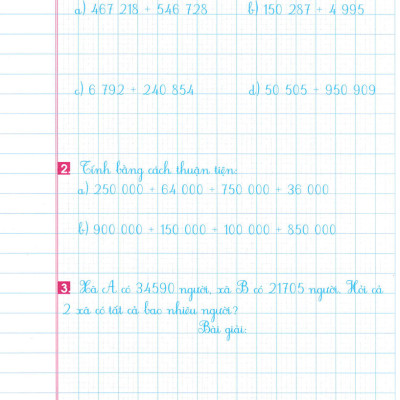 a) 467 218 + 546 728 b) 150 287 + 4 995
c) 6 792 + 240 854 d) 50 505 + 950 909
2 Tính bằng cách thuận tiện:
a) 250 000 + 64 000 + 750 000 + 36 000
b) 900 000 + 150 000 + 100 000 + 850 000
3. Xã A có 34590 người, xã B có 21705 người. Hỏi cả
2 xã có tất cả bao nhiêu người?
Bài giải: